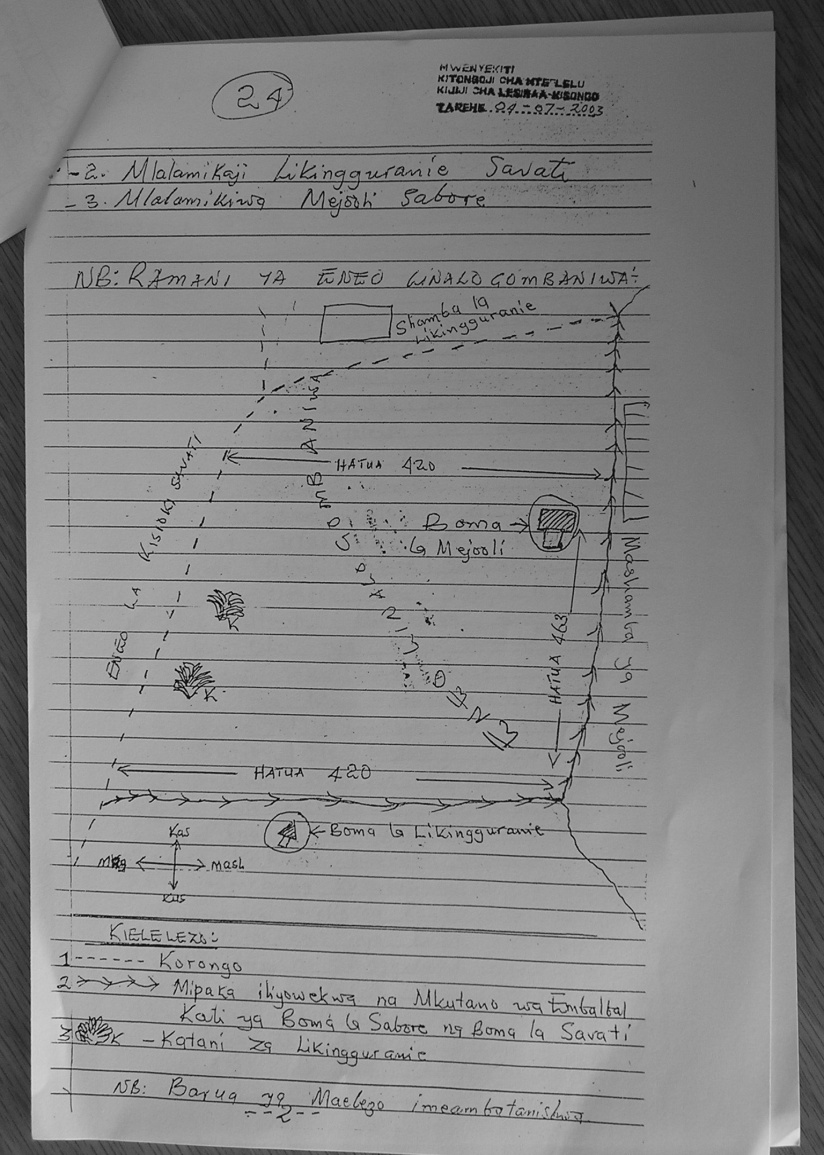 24
MWENYEKITI
KITONGOJI CHA
KIJIJI CHA LESIRAA-KISONGO
TAREHE 04-07-2003
-2. Mlalamikaji Likingguranie Savati
-3. Mlalamikiwa Mejooli Sabore
NB: RAMANI YA ENEO LINALOGOMBANIWA:
Shamba la
Likingguranie
ENEO LA KISIOKI SAVATI
HATUA 420
ENEO LINALOGOMBANIWA
Boma
la Mejooli
HATUA 463
Mashamba ya Mejooli
K
K
HATUA 420
Boma la Likingguranie
Kas
Mash
Kus
KIELELEZO:
1 ------ Korongo
2 Mipaka iliyowekwa na Mkutano wa Embalbal
Kati ya Boma la Sabore na Boma la Savati
3 K - Katani za Likingguranie
NB: Barua ya Maelezo imeambatanishwa
--2--